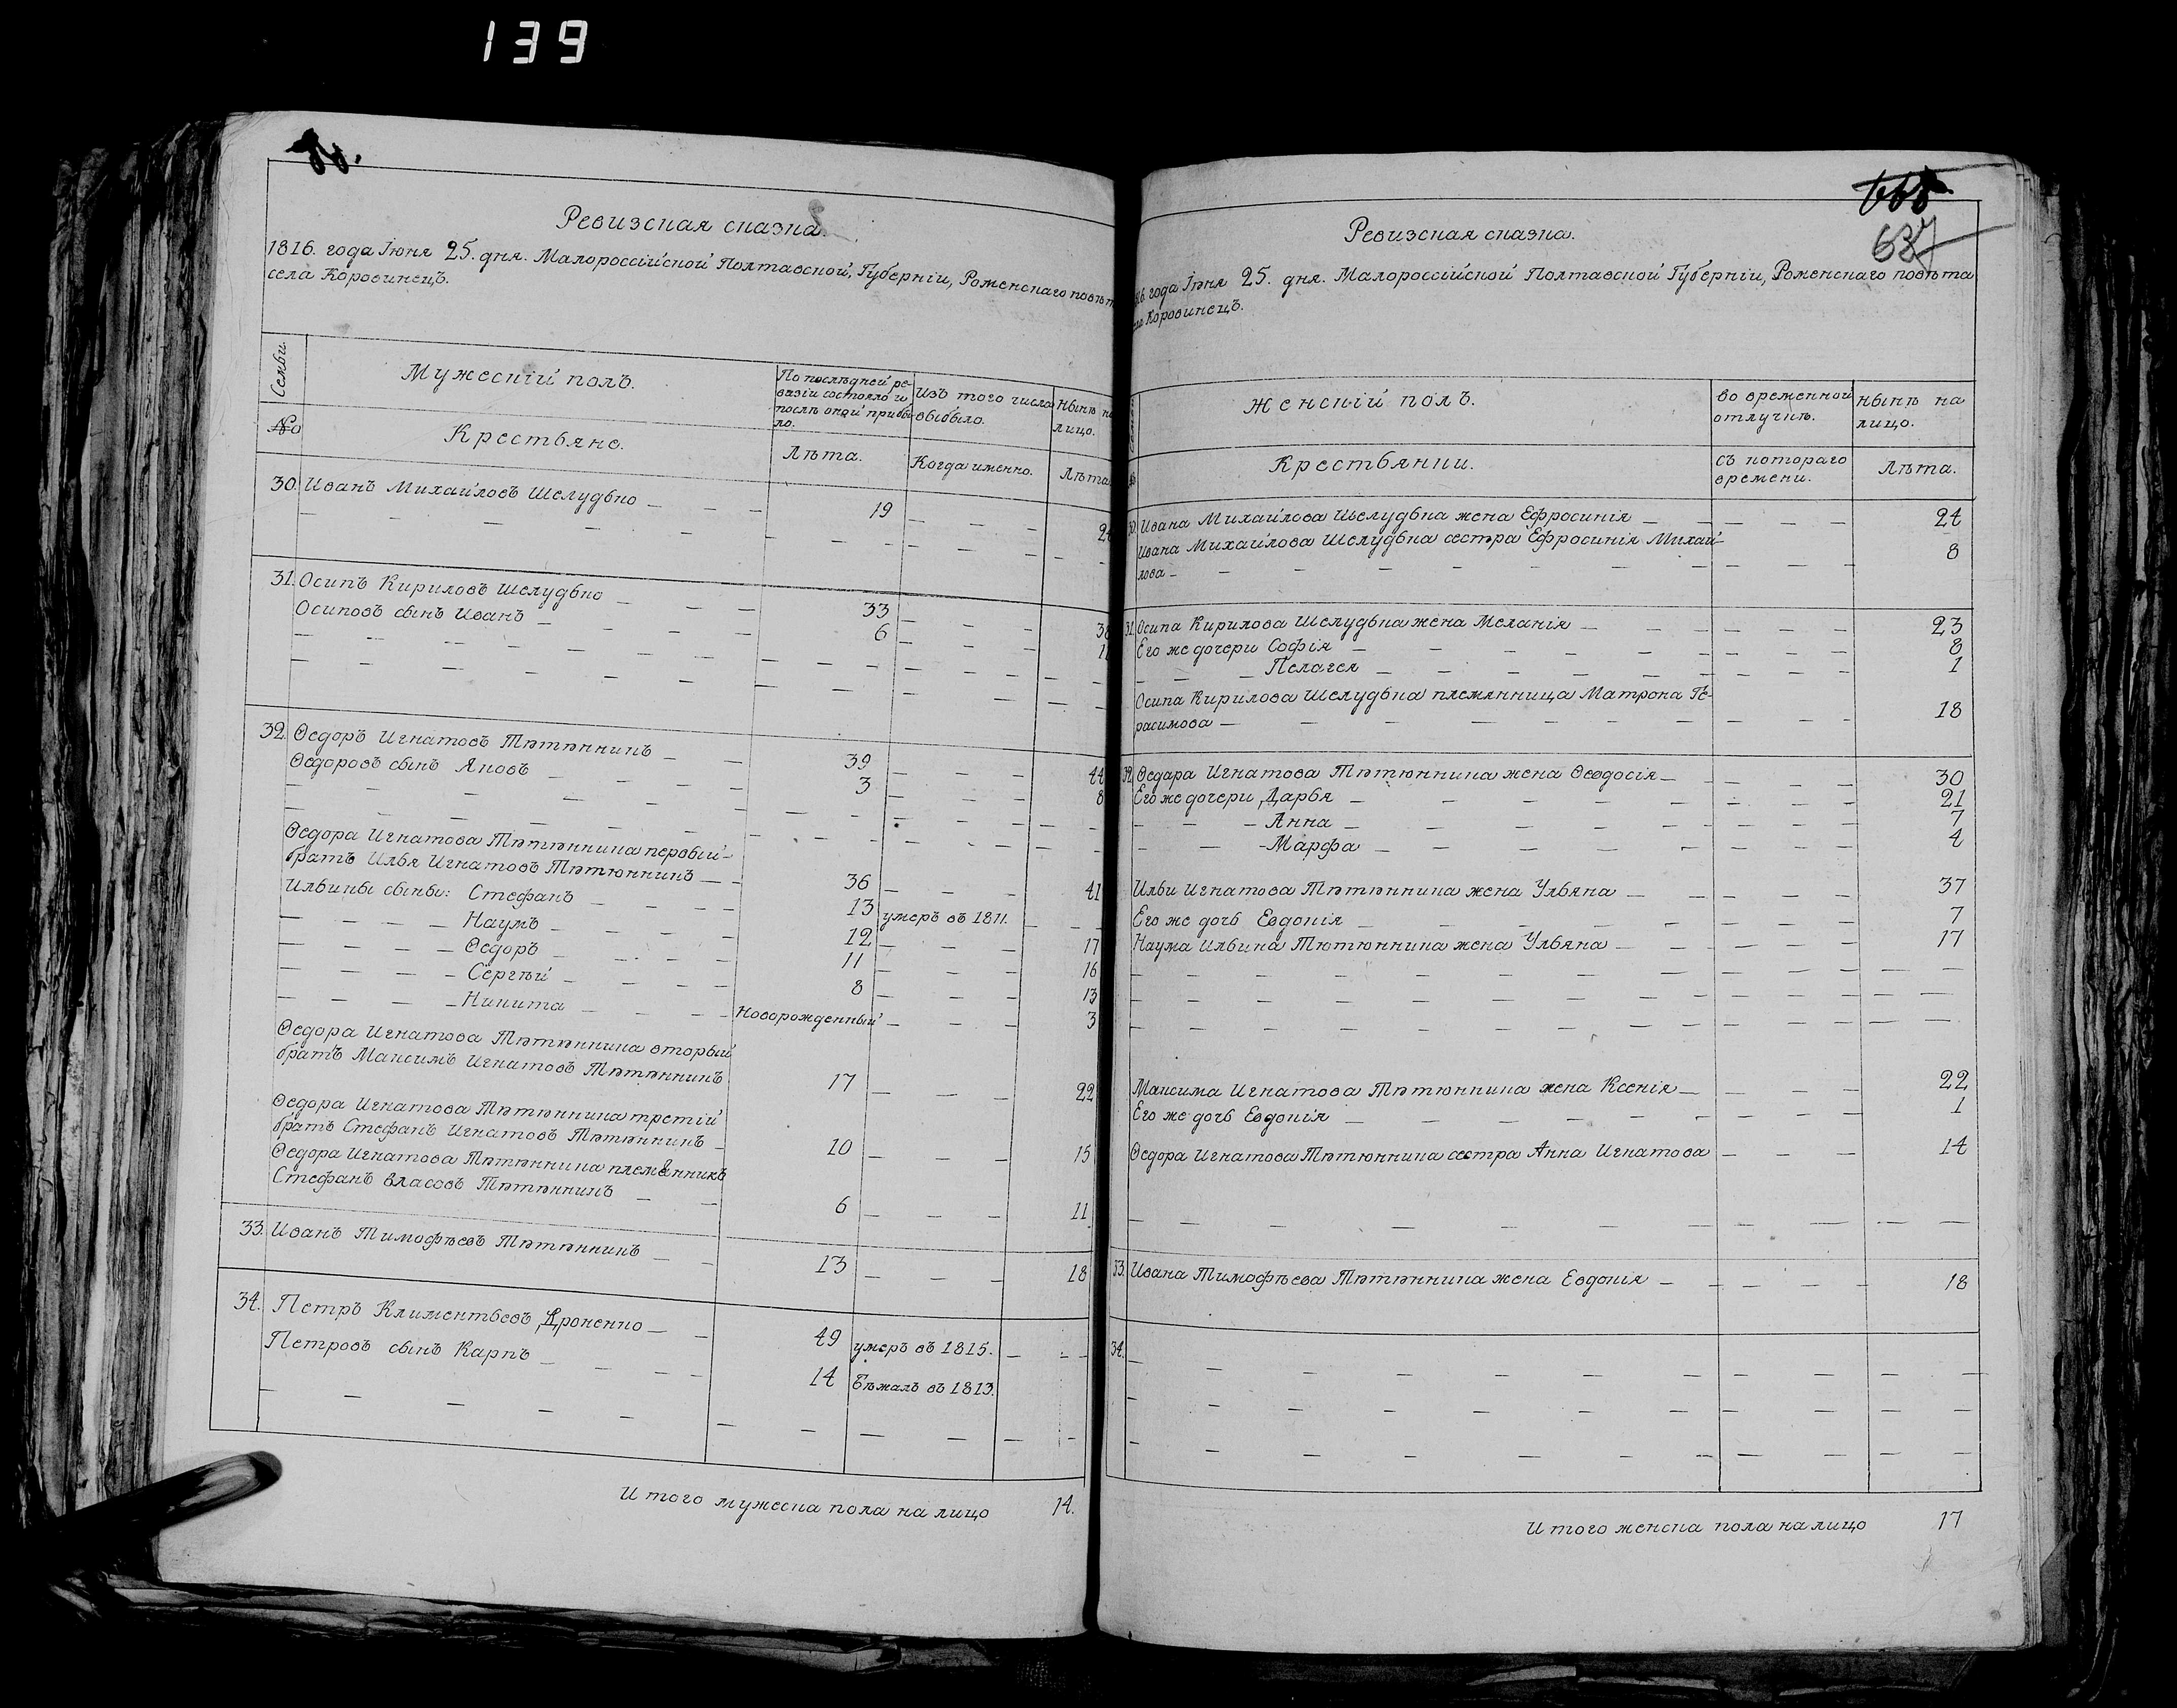 139
Ревизская сказка.
1816. года Іюня 25. дня. Малороссійской Полтавской, Губерніи, Роменскаго повѣт
села Коровинецъ.
Семьи.
№
Мужескій полъ.
Крестьяне.
По послѣдней ре-
визіи состояло и
послѣ оной прибы-
ло.
Лѣта.
Изъ того числа
выбыло.
Когда именно.
Нынѣ на
лицо.
Лѣта
30. Иванъ Михайловъ Шелудько — — — 19 — — — 24
31. Осипъ Кириловъ Шелудько — — — 33 — — — 38
Осиповъ сынъ Иванъ — — — 6 — — — 11
32. Ѳедоръ Игнатовъ Тютюнникъ — — 39 — — — 44
Ѳедоровъ сынъ Яковъ — — — 3 — — — 8
Ѳедора Игнатова Тютюнника первый
братъ Илья Игнатовъ Тютюнникъ — — 36 — — — 41
Ильины сыны: Стефанъ — — — 13 умеръ въ 1811. — — —
— — — Наумъ — — — 12 — — — 17
— — — Ѳедоръ — — — 11 — — — 16
— — — Сергѣй — — — 8 — — — 13
— — — Никита — — — Новорожденный — — — 3
Ѳедора Игнатова Тютюнника вторый
братъ Максимъ Игнатовъ Тютюнникъ 17 — — — 22
Ѳедора Игнатова Тютюнника третій
братъ Стефанъ Игнатовъ Тютюнникъ — 10 — — — 15
Ѳедора Игнатова Тютюнника племянникъ
Стефанъ Власовъ Тютюнникъ — — 6 — — — 11
33. Иванъ Тимофѣевъ Тютюнникъ — — 13 — — — 18
34. Петръ Климентьевъ Дроненко — — 49 умеръ въ 1815. — — —
Петровъ сынъ Карпъ — — — 14 Бѣжалъ въ 1813.
Итого мужеска пола на лицо 14.
637
Ревизская сказка.
года Іюня 25. дня. Малороссійской Полтавской Губерніи, Роменскаго повѣта
Коровинецъ.
Женскій полъ.
Крестьянки.
во временной
отлучкѣ.
съ котораго
времени.
нынѣ на
лицо.
Лѣта.
30. Ивана Михайлова Шелудька жена Ефросинія — — — — 24
Ивана Михайлова Шелудька сестра Ефросинія Михай-
лова — — — — 8
31. Осипа Кирилова Шелудька жена Меланія — — — — 23
Его же дочери Софія — — — — 8
— — — Пелагея — — — — 1
Осипа Кирилова Шелудька племянница Матрона Ге-
расимова — — — — 18
32. Ѳедара Игнатова Тютюнника жена Ѳеодосія — — — — 30
Его же дочери, Дарья — — — — 21
— — — Анна — — — — 7
— — — Марфа — — — — 4
Ильи Игнатова Тютюнника жена Ульяна — — — — 37
Его же дочь Евдокія — — — — 7
Наума Ильина Тютюнника жена Ульяна — — — — 17
Максима Игнатова Тютюнника жена Ксенія — — — — 22
Его же дочь Евдокія — — — — 1
Ѳедора Игнатова Тютюнника сестра Анна Игнатова — — — 14
33. Ивана Тимофѣева Тютюнника жена Евдокія — — — — 18
34.
Итого женска пола на лицо 17